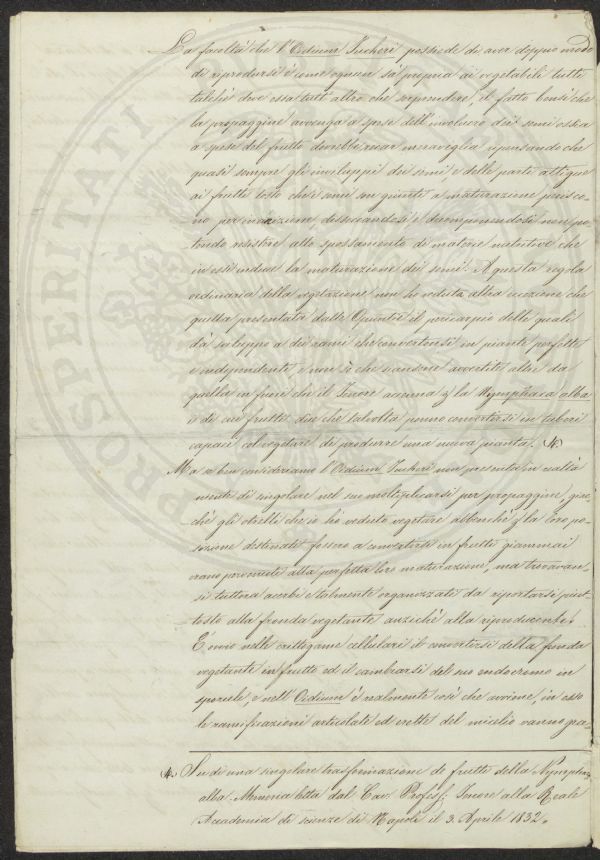 La facoltà che l'Oidium Tucheri possiede di aver doppio modo
di riprodursi è come ognun sà propria ai vegetabili tutti
talchè deve essa tutt'altro che sorprendere, il fatto bensì che
la propaggine avvenga a spese dell'involucro dei semi ossia
a spese del frutto dovrebbe recar meraviglia ripensando che
quasi sempre gli inviluppi dei semi e delle parti attigue
ai frutti tosto che i semi son giunti a maturazione perisco-
no per inanizione disseccandosi e decomponendosi non po-
tendo resistere allo spossamento di materie nutritive che
in essi induce la maturazione dei semi. A questa regola
ordinaria della vegetazione non ho veduta altra eccezione che
quella presentata dalle Opuntie il pericarpio delle quali
dà sviluppo a dei rami che convertonsi in piante perfette
e indipendenti, e non sò che ne siano avvertite altre da
quella in fuori che il Tenore accenna p la Nymphaea alba
i di cui frutti dice che talvolta ponno convertirsi in tuberi
capaci col vegetare di produrre una nuova pianta. (4)
Ma se ben consideriamo l'Oidium Tucheri non presenta in realtà
niente di singolare nel suo moltiplicarsi per propaggine, giac-
chè gli otricelli che io ho veduto vegetare abbenchè p la loro po-
sizione destinati fossero a convertirsi in frutti giammai
erano pervenuti alla perfetta loro maturazione, ma trovavan-
si tuttora acerbi e talmente organizzati da riportarsi piut-
tosto alla fronda vegetante anzichè alla riproducente.
È ovvio nelle crittogame cellulari il convertirsi della fronda
vegetante in frutto ed il cambiarsi del suo endocromo in
sporule, e nell'Oidium è realmente così che avviene, in esso
le ramificazioni articolate ed erette del micelio vanno gra-
(4) Su di una singolare trasformazione de frutti della Nymphea
alba Memoria letta dal Cav. Profess. Tenore alla Reale
Accademia di scienze di Napoli il 3. Aprile 1832.
PROSPERITATI